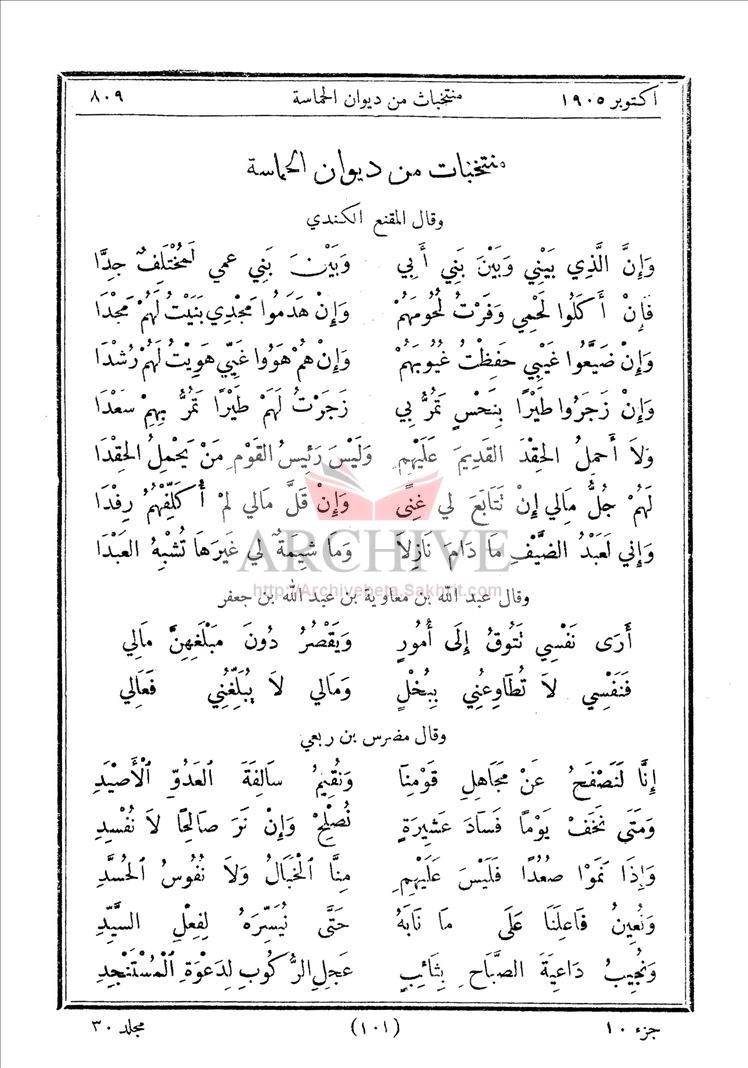 اكتوبر ١٩٠٥ منتخبات من ديوان الحماسة ٨٠٩
منتخبات من ديوان الحماسة
وقال المقنع الكندي
وَإِنَّ الَّذِي بَيْنِي وَبَيْنَ بَنِي أَبِي وَبَيْنَ بَنِي عمي لَمُخْتَلِفٌ جِدًّا
فَإِنْ أَكَلُوا لَحْمِي وَفَرْتُ لُحُومَهُمْ وَإِنْ هَدَمُوا مَجْدِي بَنَيْتُ لَهُمْ مَجْدَا
وَإِنْ ضَيَّعُوا غَيْبِي حَفِظْتُ غُيُوبَهُمْ وَإِنْ هُمْ هَوُوا غَيِّي هَوِيْتُ لَهُمْ رُشْدَا
وَإِنْ زَجَرُوا طَيْرًا بِنَحْسٍ تَمُرُّ بِي زَجَرْتُ لَهُمْ طَيْرًا تَمُرُّ بِهِمْ سَعْدَا
وَلاَ أَحمِلُ الحِقْدَ القَدِيمَ عَلَيْهِمِ وَلَيْسَ رَئِيسُ القَوْمِ مَنْ يَحْمِلُ الحِقْدَا
لَهُمْ جُلُّ مَالِي إِنْ تَتَابَعَ لِي غِنًى وَإِنْ قَلَّ مَالِي لَمْ أُكَلِّفْهُمُ رِفْدَا
وَإِنِي لَعَبْدُ الضَّيْفِ مَا دَامَ نَازِلاً وَمَا شِيمَةٌ لِي غَيرَهَا تُشْبِهُ العَبْدَا
ARCHIVE
http://Archivebeta.Sakhrit.com
وقال عبد الله بن معاوية بن عبد الله ابن جعفر
أَرَى نَفْسِي تَتُوقُ إِلَى أُمُورٍ وَيَقْصُرُ دُونَ مَبْلَغِهِنَّ مَالِي
فَنَفْسِي لاَ تُطَاوِعُنِي بِبُخْلٍ وَمَالِي لاَ يُبَلِّغُنِي فَعَالِي
وقال مضرس بن ربعي
إِنَّا لَنَصْفَحُ عَنْ مَجَاهِلِ قَوْمِنَا وَنُقِيمُ سَالِفَةَ العَدُوِّ الْأَصْيَدِ
وَمَتَى نَخَفْ يَوْمًا فَسَادَ عَشِيرَةٍ نُصْلِحْ وَإِنْ نَرَ صَالِحًا لاَ نُفْسِدِ
وَإِذَا نَمَوْا صُعُدًا فَلَيْسَ عَلَيْهِمِ مِنَّا الْخَبَالُ وَلاَ نُفُوسُ الحُسَّدِ
وَنُعِينُ فَاعِلَنَا عَلَى مَا نَابَهُ حَتَّى نُيَسِّرَهُ لِفِعْلِ السَّيِّدِ
وَنُجِيبُ دَاعِيَةَ الصَّبَاحِ بِثَائِبٍ عَجِلِ الرُّكُوبِ لِدَعْوَةِ الْمُسْتَنْجِدِ
جزء ١٠ (١٠١) مجلد ٣٠